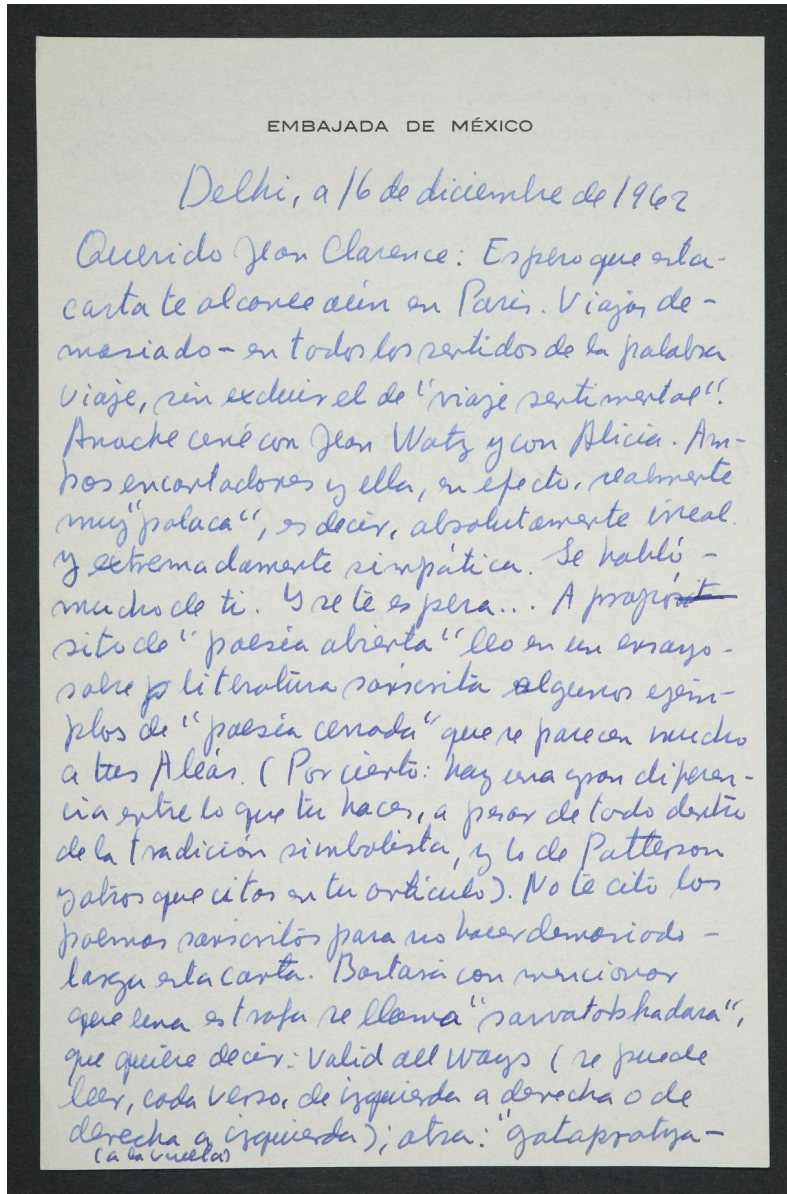 EMBAJADA DE MÉXICO
Delhi, a 16 de diciembre de 1962
Querido Jean Clarence: Espero que esta-
carta te alcance aún en Paris. Viajas de-
masiado - en todos los sentidos de la palabra
viaje, sin excluir el de "viaje sentimental".
Anoche cené con Jean Watz y con Alicia. Am-
bos encantadores y ella, en efecto, realmente
muy "polaca", es decir, absolutamente irreal
y extremadamente simpática. Se habló -
mucho de ti. Y se te espera... A propósit
sito de "poesía abierta" leo en un ensayo -
sobre literatura sánscrita algunos ejem-
plos de "poesía cerrada" que se parecen mucho
a tus Aleás. (Por cierto: hay una gran diferen-
cia entre lo que tu haces, a pesar de todo dentro
de la tradición simbolista, y lo de Patterson
y otros que citas en tu artículo). No te cito los
poemas sánscritos para no hacer demasiado -
larga esta carta. Bastará con mencionar
que una estrofa se llama "sarvatobhadara",
que quiere decir: valid all ways (se puede
leer, cada verso, de izquierda a derecha o de
derecha a izquierda); otra: "gatapratya-
(a la vuelta)